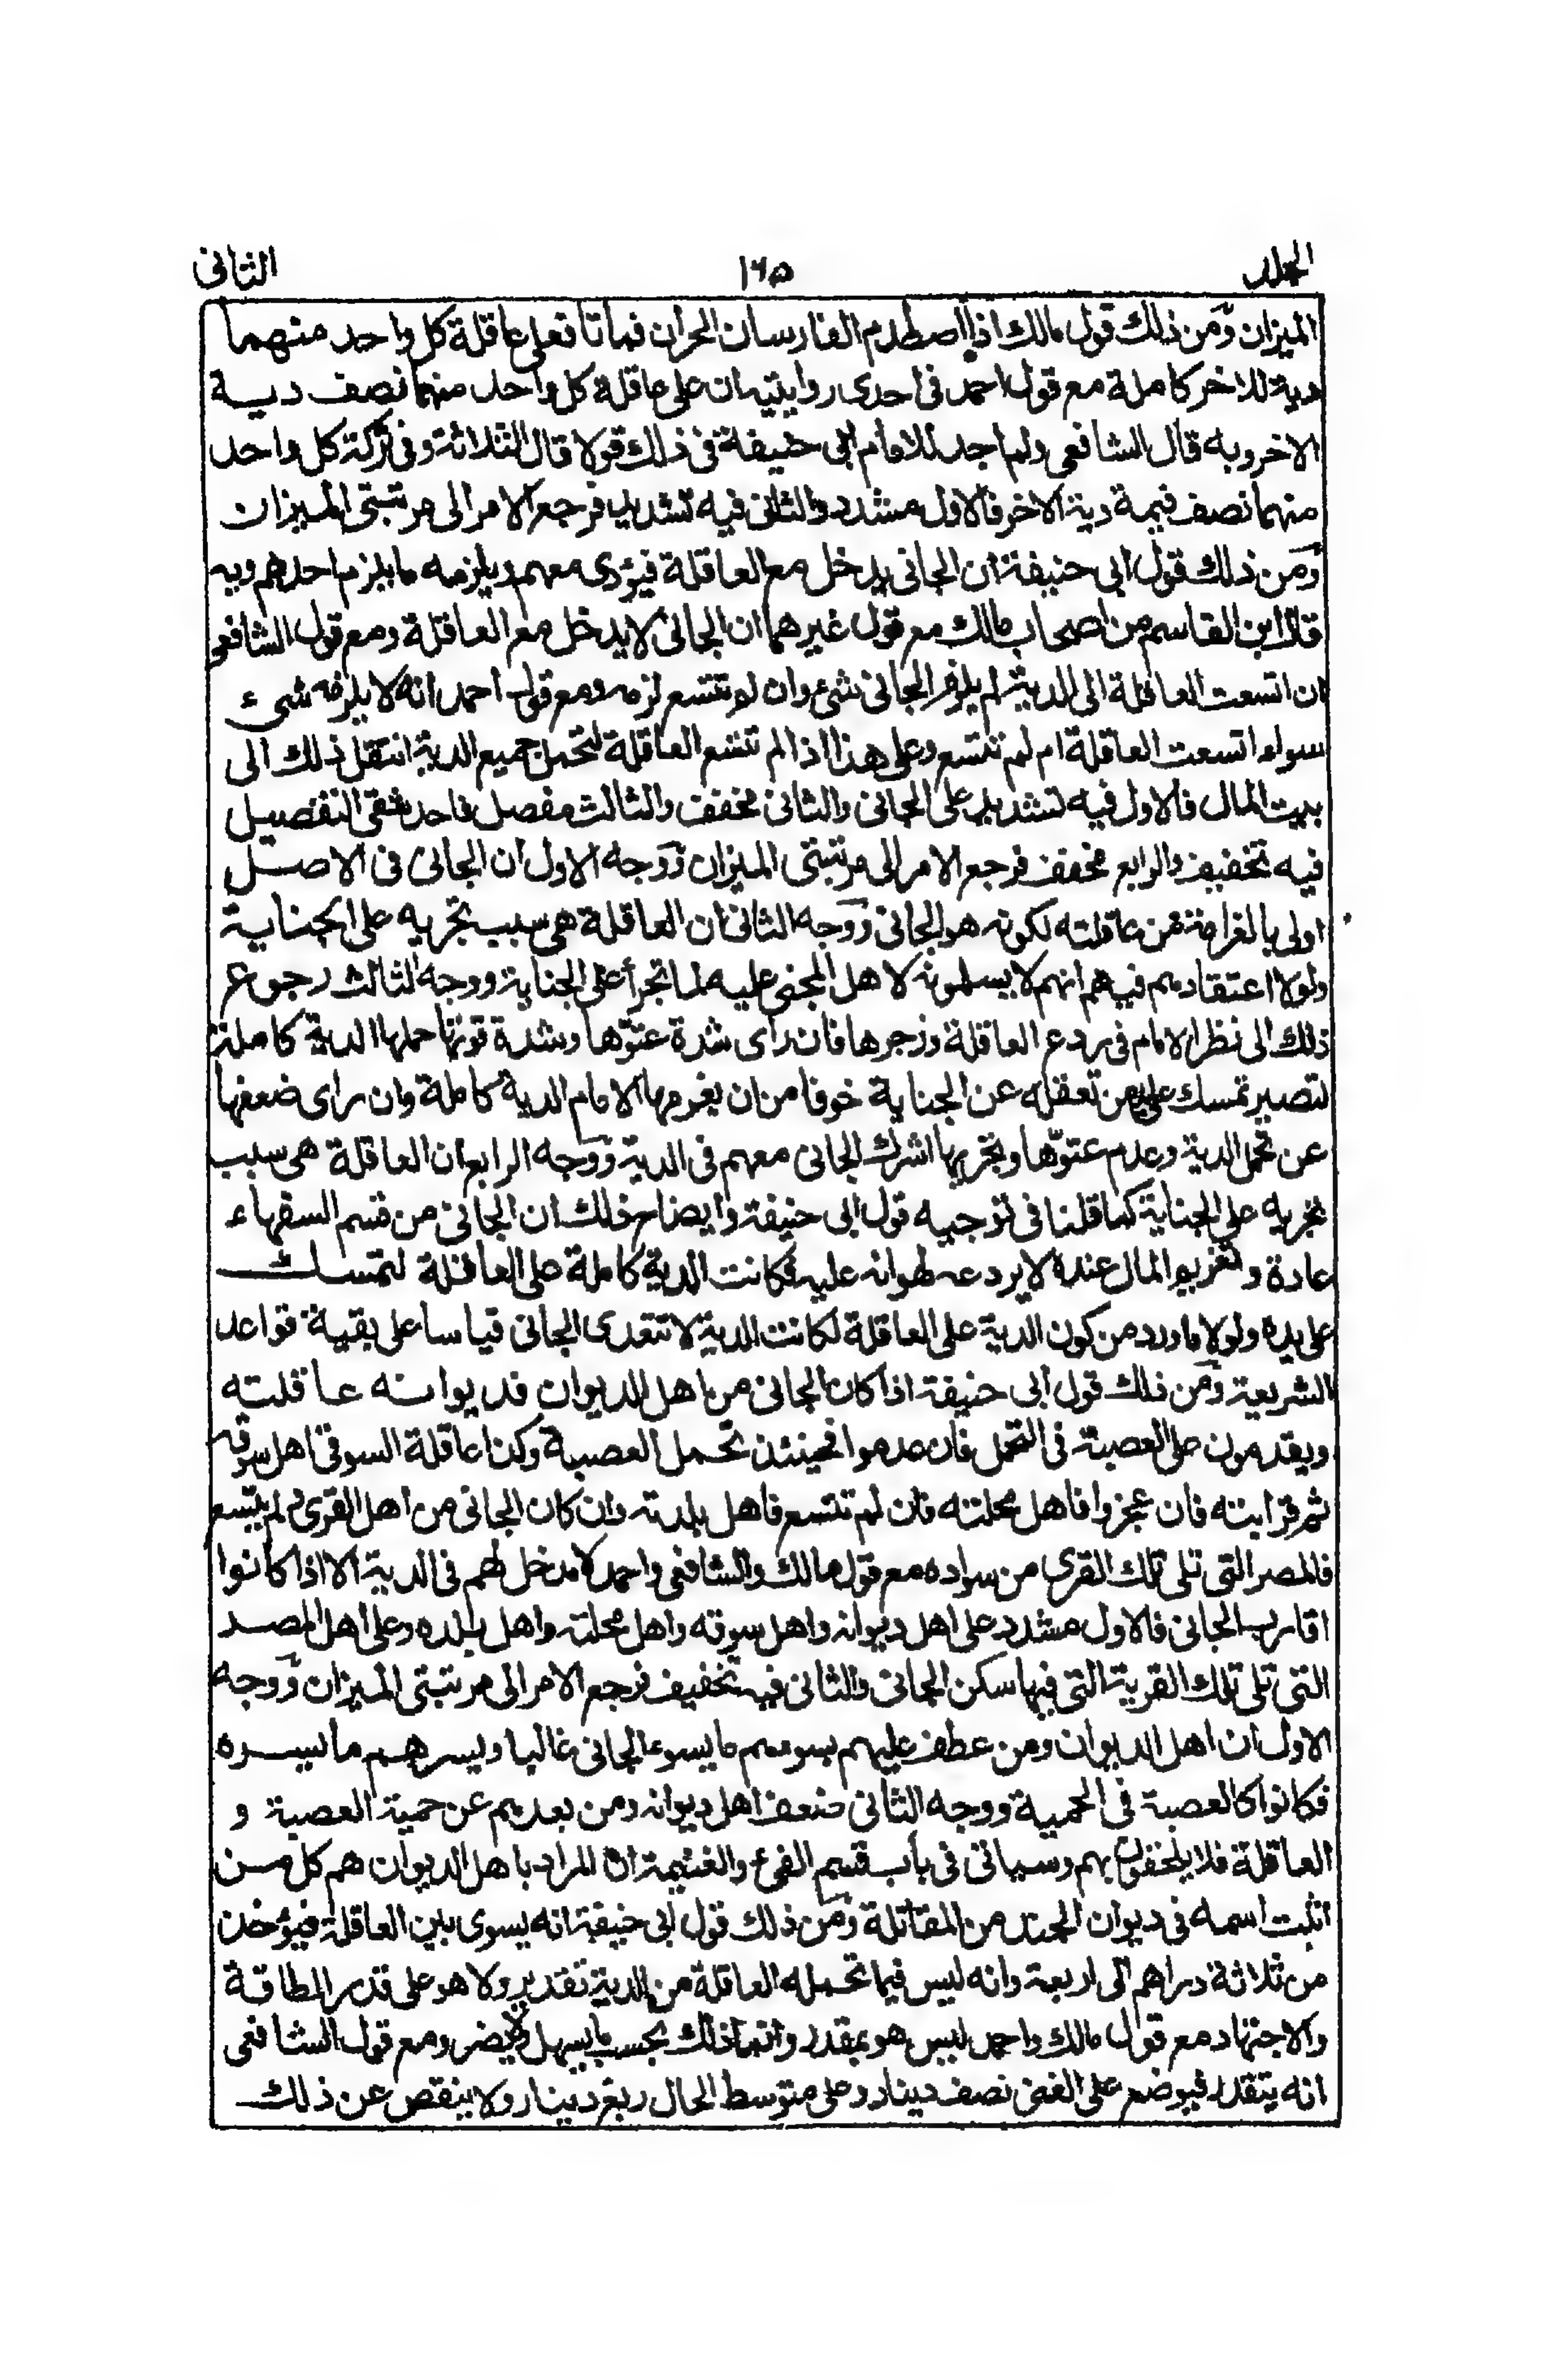 المجلد ١٦٥ الثانى
الميزان ومن ذلك قول مالك اذا اصطدم الفارسان الحران فماتا فعلى عاقلة كل واحد منهما
دية للاخر كاملة مع قول احمد فى احدى روايتيه ان على عاقلة كل واحد منهما نصف دية
الاخر وبه قال الشافعى ولم اجد للامام ابى حنيفة فى ذلك قولا قال الثلاثة وفى تركة كل واحد
منهما نصف قيمة دية الاخر فالاول مشدد والثانى فيه تشديد فرجع الامر الى مرتبتى الميزان
ومن ذلك قول ابى حنيفة ان الجانى يدخل مع العاقلة فيؤدى معهم ويلزمه ما يلزم احدهم وبه
قال ابن القاسم من اصحاب مالك مع قول غيرهما ان الجانى لا يدخل مع العاقلة ومع قول الشافعى
ان اتسعت العاقلة الى الدية لم يلزم الجانى شىء وان لم تتسع لزمه ومع قول احمد انه لا يلزمه شىء
سواء اتسعت العاقلة ام لم تتسع وعلى هذا اذا لم تتسع العاقلة لتحمل جميع الدية انتقل ذلك الى
بيت المال فالاول فيه تشديد على الجانى والثانى مخفف والثالث مفصل فاحد شقى التفصيل
فيه تخفيف والرابع مخفف فرجع الامر الى مرتبتى الميزان ووجه الاول ان الجانى فى الاصل
اولى بالغرامة من عاقلته لكونه هو الجانى ووجه الثانى ان العاقلة هى سبب تجريه على الجناية
ولولا اعتقاده فيهم انهم لا يسلمونه لاهل المجنى عليه لما اتجرأ على الجناية ووجه الثالث رجوع
ذلك الى نظر الامام فى ردع العاقلة وزجرها فان راى شدة عتوّها وشدة قوتها حملها الدية كاملة
لتصير تمسك على يد من تعقله عن الجناية خوفا من ان يغرمها الامام الدية كاملة وان راى ضعفها
عن تحمل الدية وعدم عتوّها وتجريها اشرك الجانى معهم فى الدية ووجه الرابع ان العاقلة هى سبب
تجريه على الجناية كما قلنا فى توجيه قول ابى حنيفة وايضاح ذلك ان الجانى من قسم السفهاء
عادة وتغريم المال عنده لا يردعه لهوانه عليه فكانت الدية كاملة على العاقلة لتمسك
على يده ولولا ما ورد من كون الدية على العاقلة لكانت الدية لا تتعدى الجانى قياسا على بقية قواعد
الشريعة ومن ذلك قول ابى حنيفة اذا كان الجانى من اهل الديوان فديوانه عاقلته
ويقدمون على العصبة فى التحمل فان عدموا فحينئذ تحمل العصبة وكذا عاقلة السوقى اهل سوقه
ثم قرابته فان عجزوا فاهل محلته فان لم تتسع فاهل بلدته وان كان الجانى من اهل القرى ولم يتسع
فالمصر التى تلى تلك القرى من سواده مع قول مالك والشافعى واحمد لا مدخل لهم فى الدية الا اذا كانوا
اقارب الجانى فالاول مشدد على اهل ديوانه واهل سوقه واهل محلته واهل بلده وعلى اهل المصر
التى تلى تلك القرية التى فيها سكن الجانى والثانى فيه تخفيف فرجع الامر الى مرتبتى الميزان ووجه
الاول ان اهل الديوان ومن عطف عليهم يسوءهم ما يسوء الجانى غالبا ويسرهم ما يسره
فكانوا كالعصبة فى الحمية ووجه الثانى ضعف اهل ديوانه ومن بعدهم عن حمية العصبة و
العاقلة فلا يلحقون بهم وسياتى فى باب قسم الفىء والغنيمة ان المراد باهل الديوان هم كل من
اثبت اسمه فى ديوان الجند من المقاتلة ومن ذلك قول ابى حنيفة انه يسوى بين العاقلة فيؤخذ
من ثلاثة دراهم الى اربعة وانه ليس فيما تحمله العاقلة من الدية تقدير ولا هو على قدر الطاقة
والاجتهاد مع قول مالك واحمد ليس هو بمقدر وانما ذلك بحسب ما يسهل ولا يضر ومع قول الشافعى
انه يتقدر فيوضع على الغنى نصف دينار وعلى متوسط الحال ربع دينار ولا ينقص عن ذلك